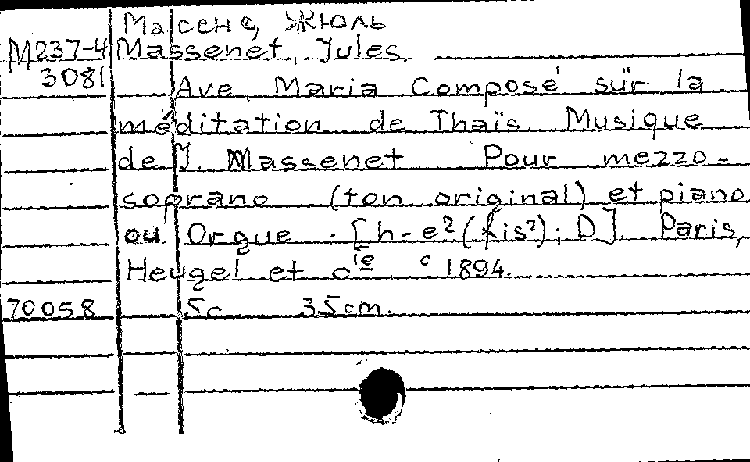 Массне, Жюль
М237-4 Massenet, Jules
3081 Ave Maria Composé sur la
méditation de Thaïs. Musique
de J. Massenet Pour mezzo-
soprano (ton original) et piano
ou Orgue. [h-e²(fis²); D] Paris,
Heugel et Cie c 1894.
70058 5c 35cm.